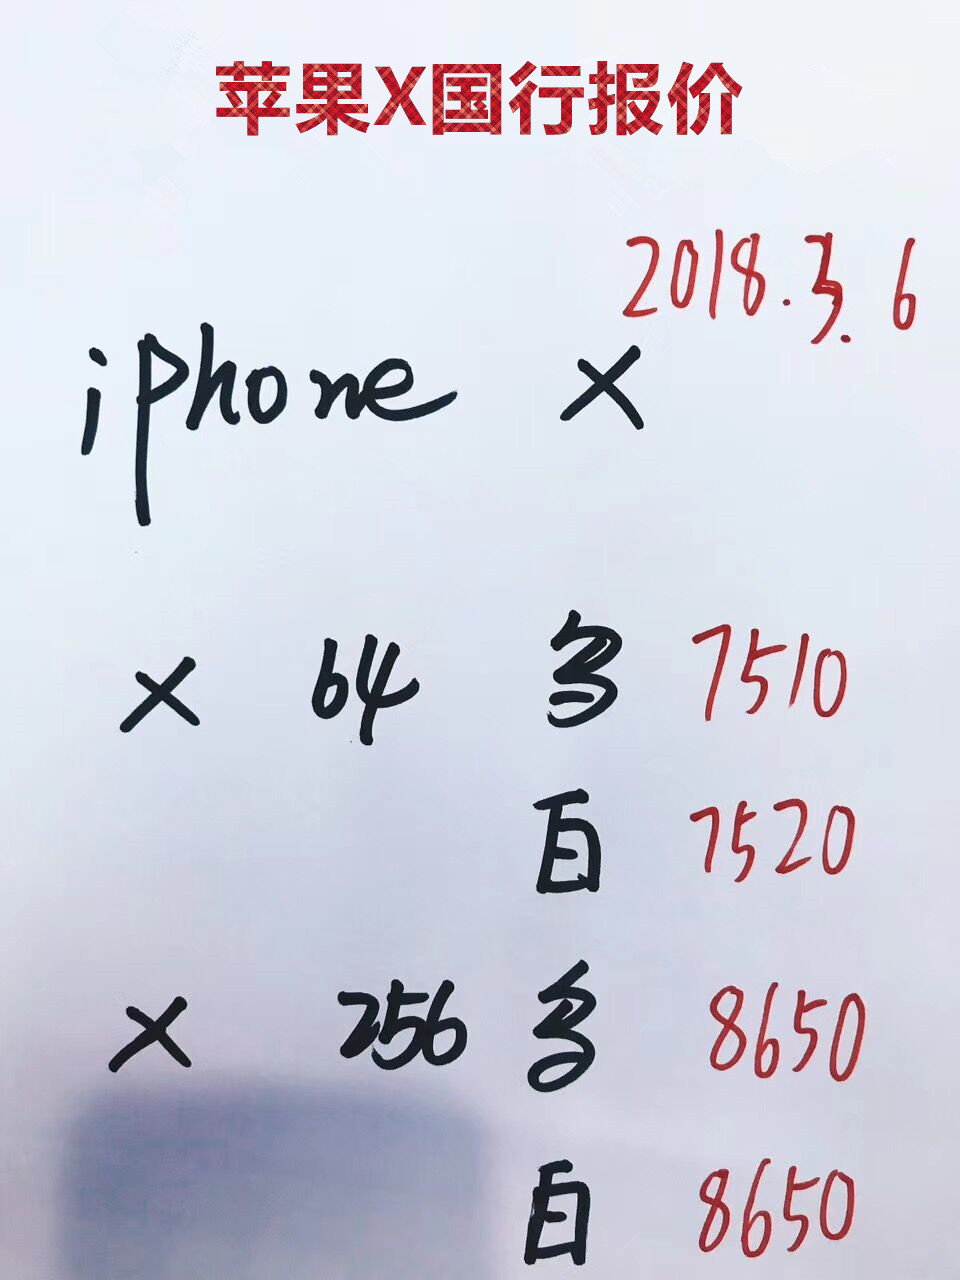 苹果X国行报价
2018.3.6
iphone X
X 64 多 7510
白 7520
X 256 多 8650
白 8650